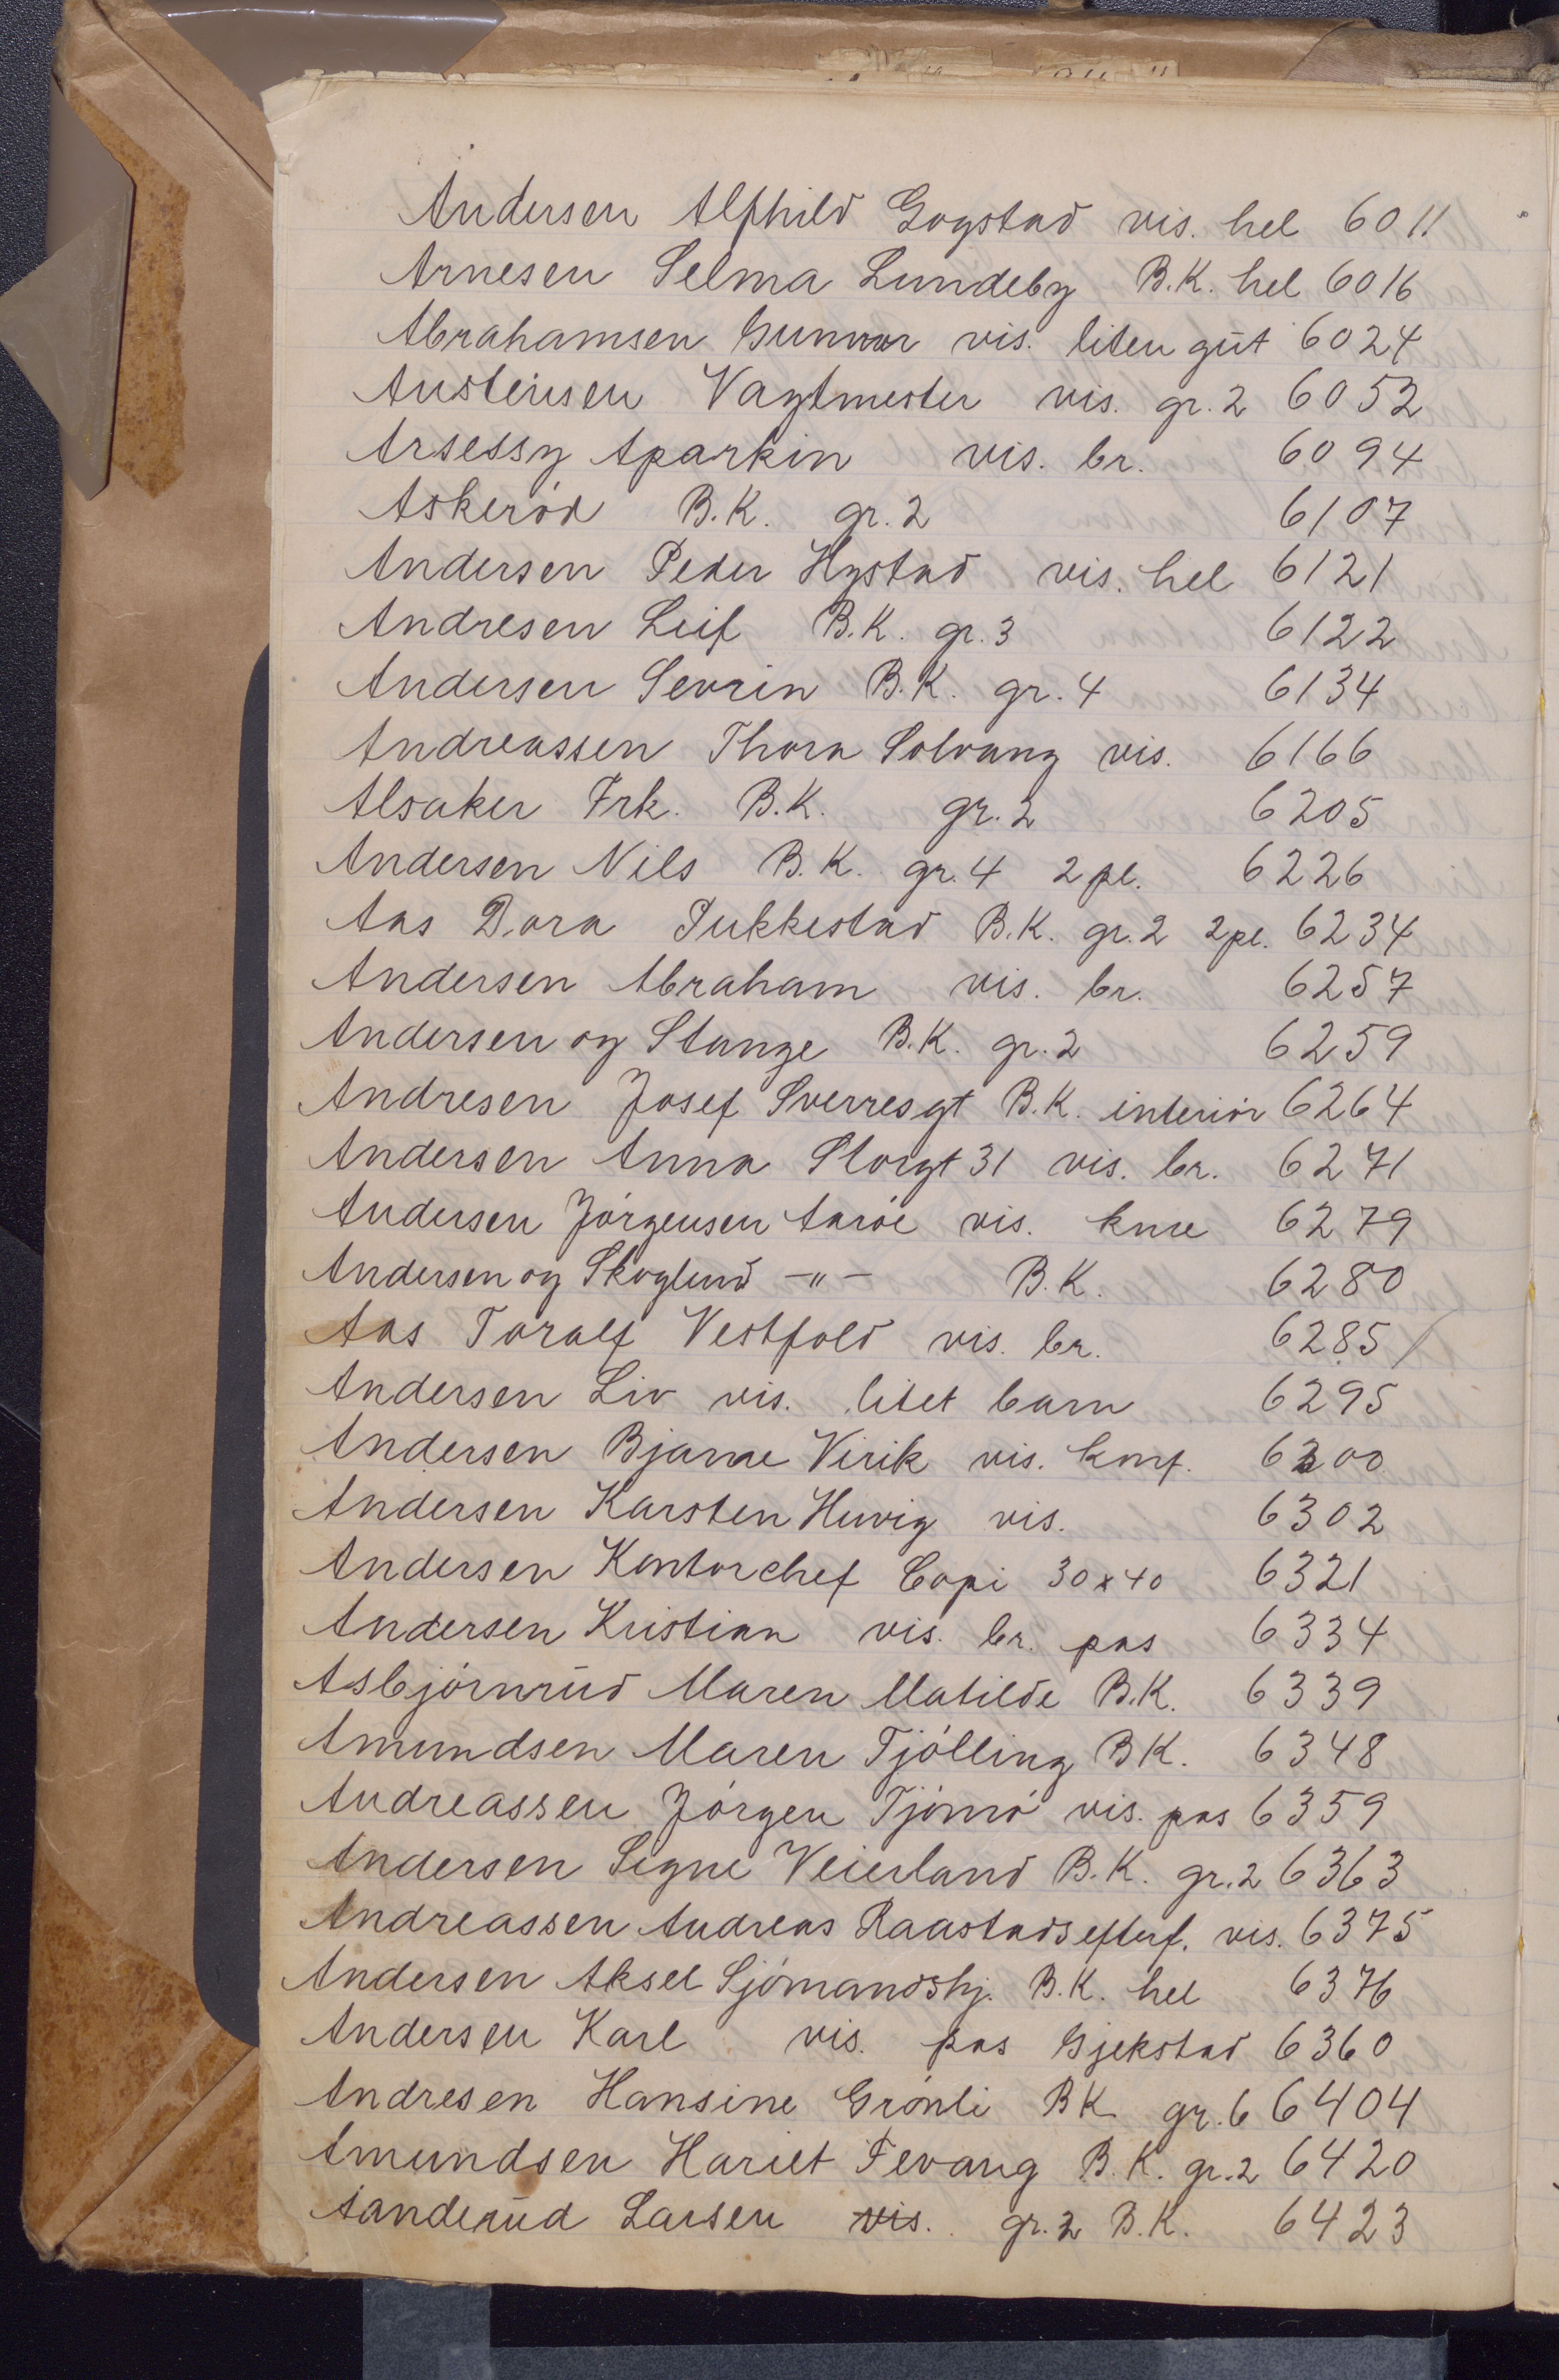 Andersen Alfhild Gogstad vis. hel 6011
Arnesen Selma Lundeby B.K. hel 6016
Abrahamsen Gunnar vis. liten gut 6024
Austeinsen Vagtmester vis. gr. 2 6053
Arsessy Aparkin vis. br. 6094
Askeröd B.K. gr. 2 6107
Andersen Peder Hystad vis. hel 6121
Andresen Leif B.K. gr. 3 6122
Andersen Sevrin B.K. gr. 4 6134
Andreassen Thora Solvang vis. 6166
Alsaker Frk. B.K. gr. 2 6205
Andersen Nils B.K. gr. 4 2 pl. 6226
Aas Dora Pukkestad B.K. gr. 2 2 pl. 6234
Andersen Abraham vis. br. 6257
Andersen og Stange B.K. gr. 2 6259
Andresen Josef Sverresgt B.K. interiör 6264
Andersen Anna Storgt 31 vis. br. 6271
Andersen Jörgensen Aaröe vis. knæ 6279
Andersen og Skoglund -"- B.K. 6280
Aas Toralf Vestfold vis. br. 6285
Andersen Liv vis. litet barn 6295
Andersen Bjarne Virik vis. konf. 6300
Andersen Karsten Huvig vis. 6302
Andersen Kontorchef Copi 30x40 6321
Andersen Kristian vis. br. pas 6334
Asbjörnrud Maren Matilde B.K. 6339
Amundsen Maren Tjölling BK. 6348
Andreassen Jörgen Tjömö vis. pas 6359
Andersen Signe Veierland B.K. gr. 2 6363
Andreassen Andreas Raastads efterf. vis. 6375
Andersen Aksel Sjömandshj. B.K. hel 6376
Andersen Karl vis. pas Gjekstad 6360
Andresen Hansine Grönli BK gr. 6 6404
Amundsen Hariet Fevang B.K. gr. 2 6420
Aanderud Larsen vis. gr. 2 B.K. 6423